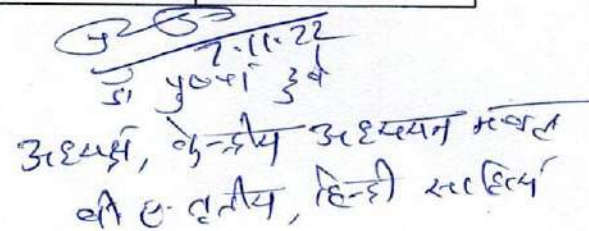 7.11.22
डॉ पुष्पा दुबे
अध्यक्ष, केन्द्रीय अध्ययन मण्डल
बी ए. तृतीय, हिन्दी साहित्य